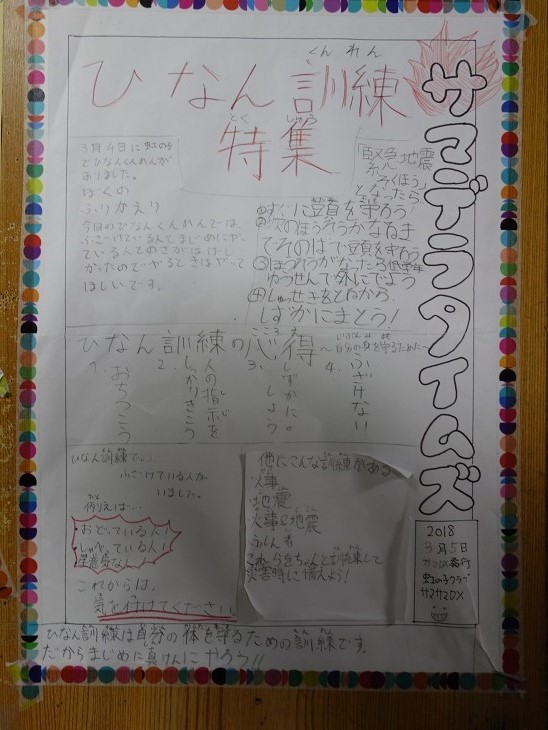 サマデラタイムズ
ひなん訓練
くんれん
特集
とくしゅう
3月4日に虹の子
でひなんくんれんが
ありました。
ぼくの
ふりかえり
今日のひなんくんれんでは、
ふざけている人とまじめにや
っている人とのさがはげし
かったのでやるときはやって
ほしいです。
「緊急地震
そくほう」
となったら
①すぐに頭を守ろう!
②次のほうそうがなるま
でそのばで頭を守ろう
③ほうそうがなったら低学年
ゆうせんで外にでよう
④しゅっせきをとるから
しずかにまとう!
ひなん訓練の心得
こころえ
〜自分の身を守るために〜
1. おちつこう
2. 人の指示を
しっかりきこう
3. しずかに。
しよう
4. ふざけない
ひなん訓練で...
ふざけている人が
いました。
例えば...
おどっている人!
しゃべっている人!
これからは、
気を付けてください。
他にこんな訓練がある
火事
地震
火事&地震
ふしん者
これらをきちんと訓練して
災害時に備えよう!
2018
3月5日
サマDX発行
虹の子クラブ
サマサマDX
ひなん訓練は自分の体を守るための訓練です。
だからまじめに真けんにやろう!!